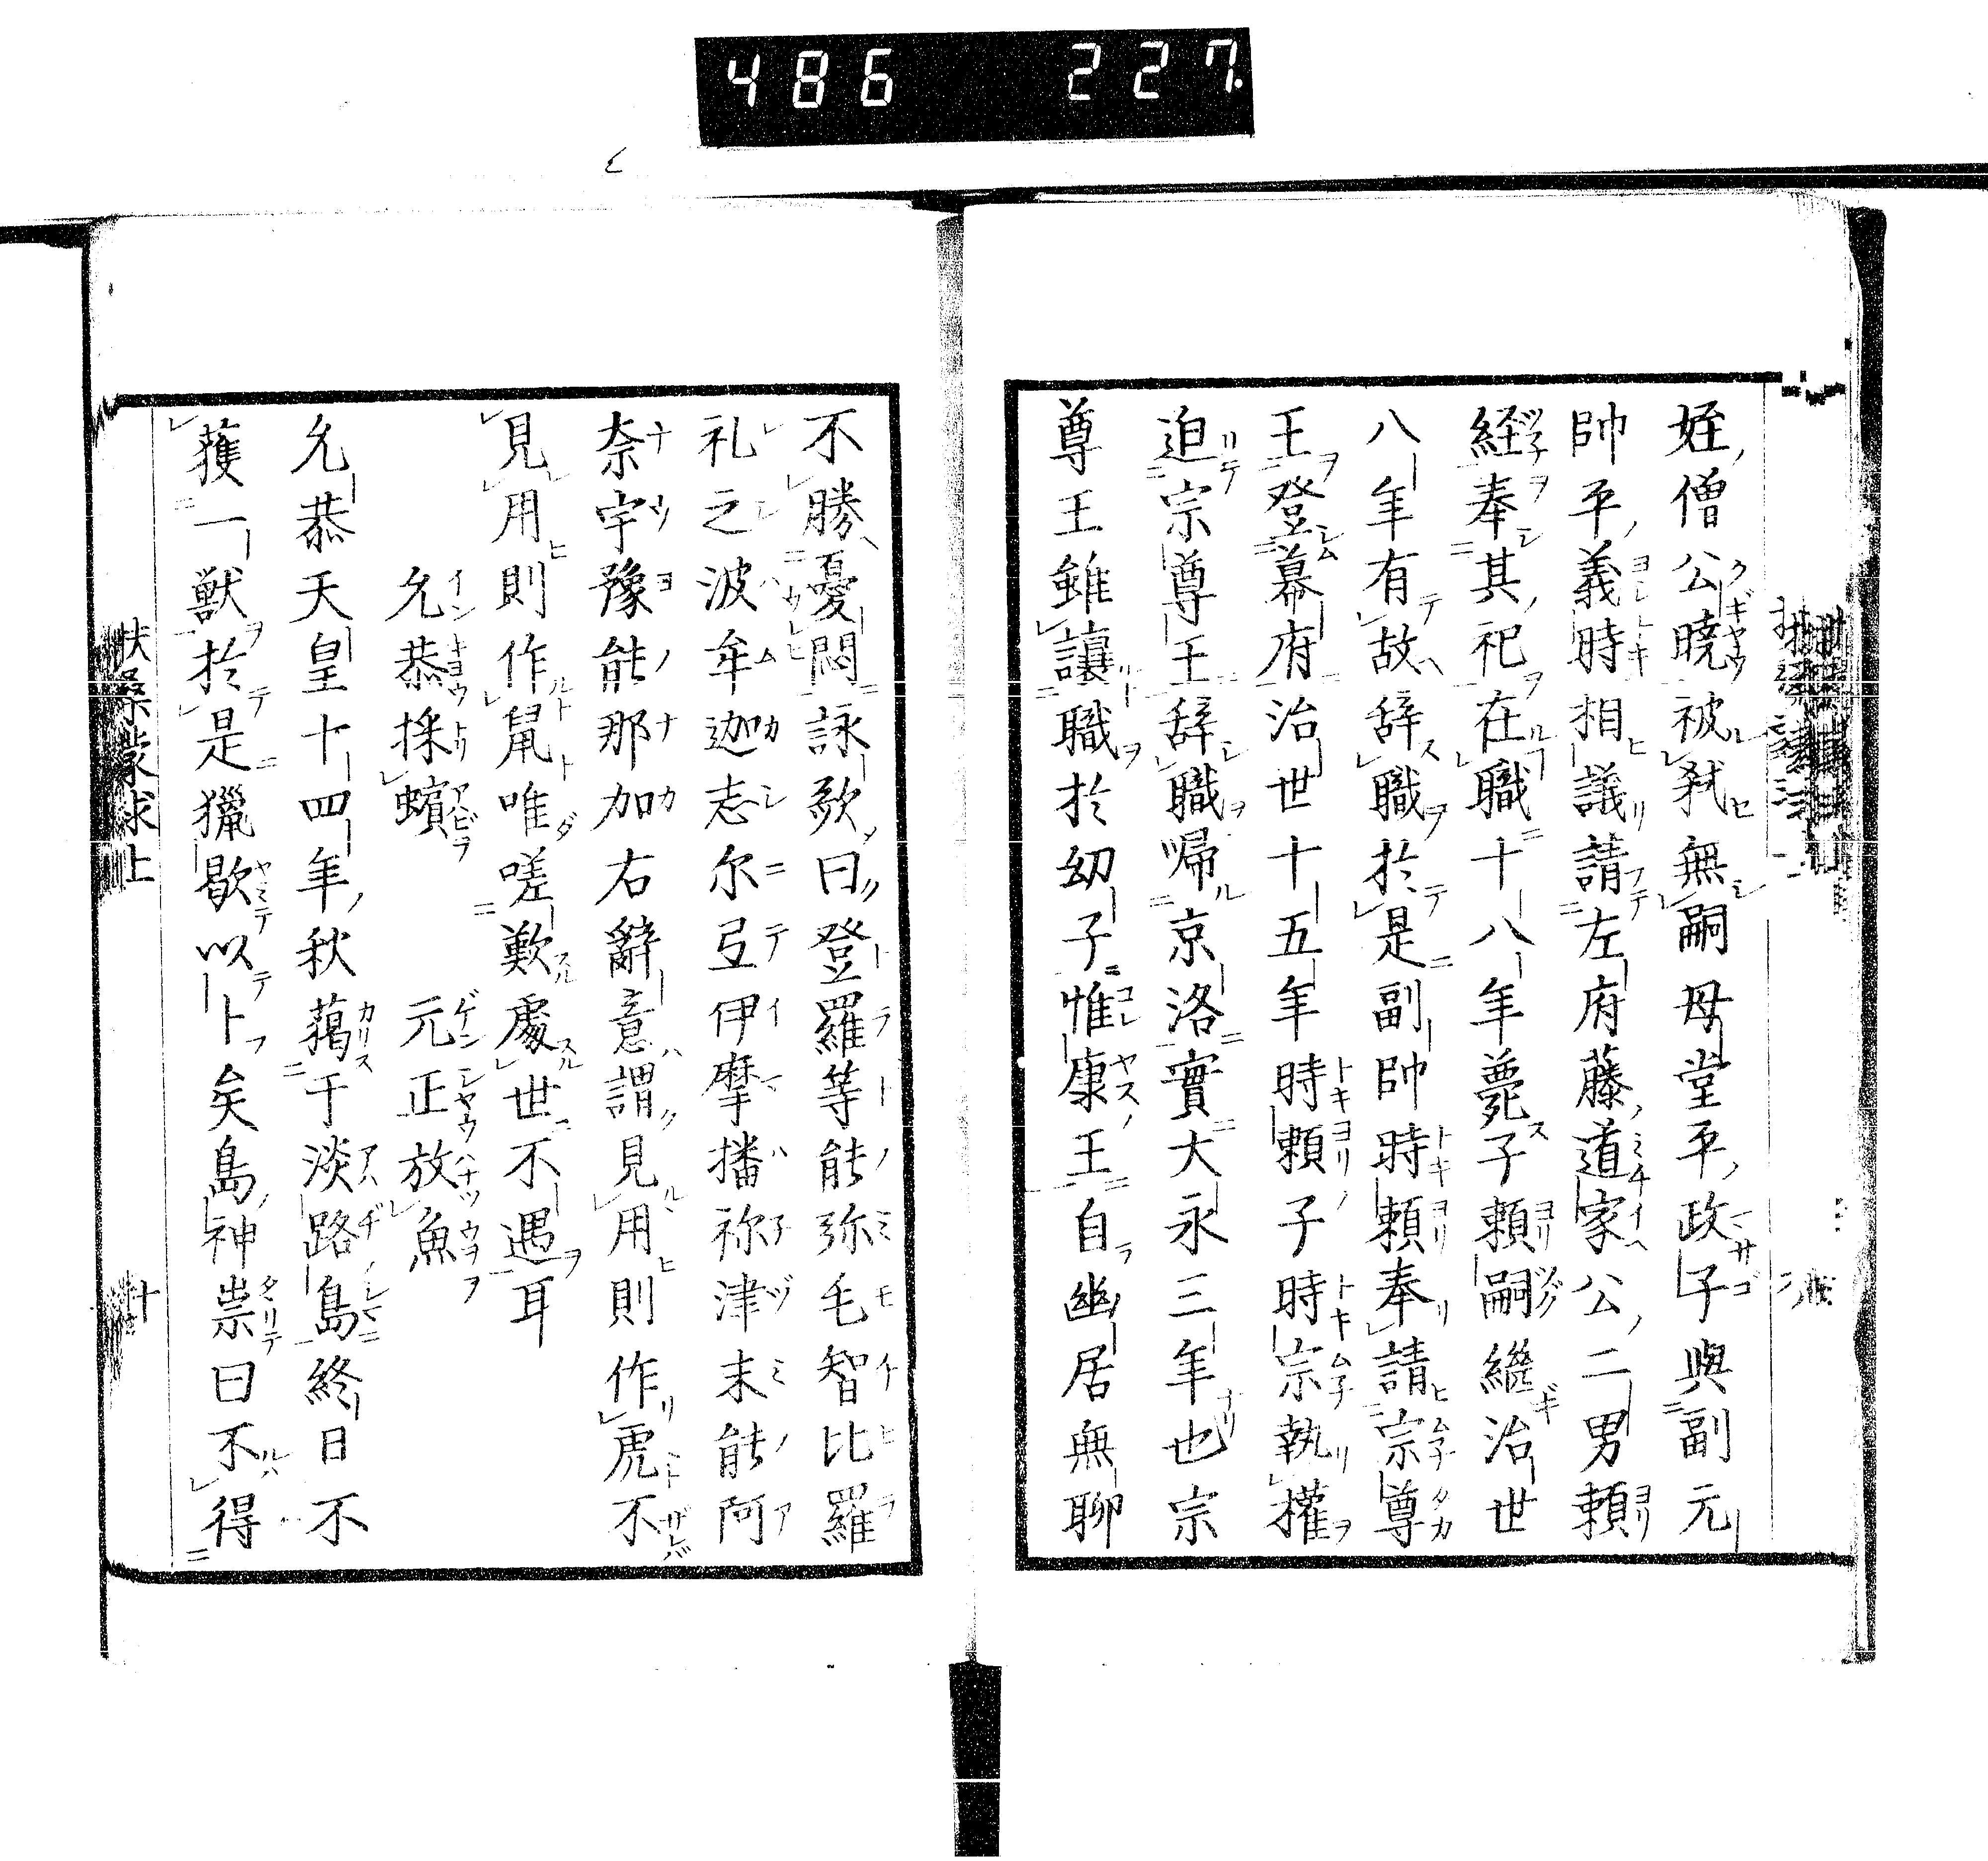 486 227
姪僧公曉被弑無嗣母堂平政子與副元
帥平義時相議請左府藤道家公二男頼
経奉其祀在職十八年薨子頼嗣継治世
八年有故辞職於是副帥時頼奉請宗尊
王登幕府治世十五年時頼子時宗執權
迫宗尊王辞職帰京洛實大永三年也宗
尊王雖讓職於幼子惟康王自幽居無聊
不勝憂悶詠歌曰登羅等能弥毛智比羅
礼之波牟迦志尓弖伊摩播祢津末能阿
奈宇豫能那加右辭意謂見用則作虎不
見用則作鼠唯嗟歎處世不遇耳
允恭採蠙 元正放魚
允恭天皇十四年秋蕩于淡路島終日不
獲一獣於是獵歇以卜矣島神祟曰不得
扶桑蒙求上
十